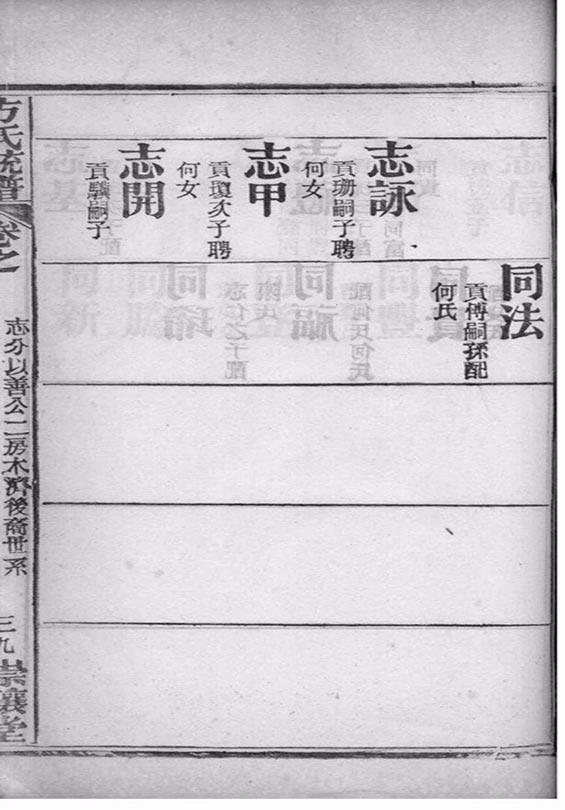 同法
貢傅嗣孫配
何氏
志詠
貢珊嗣子聘
何女
志甲
貢瓊次子聘
何女
志開
貢驥嗣子
方氏統譜
卷之
志分以善公二房木濟後裔世系
三九
崇讓堂